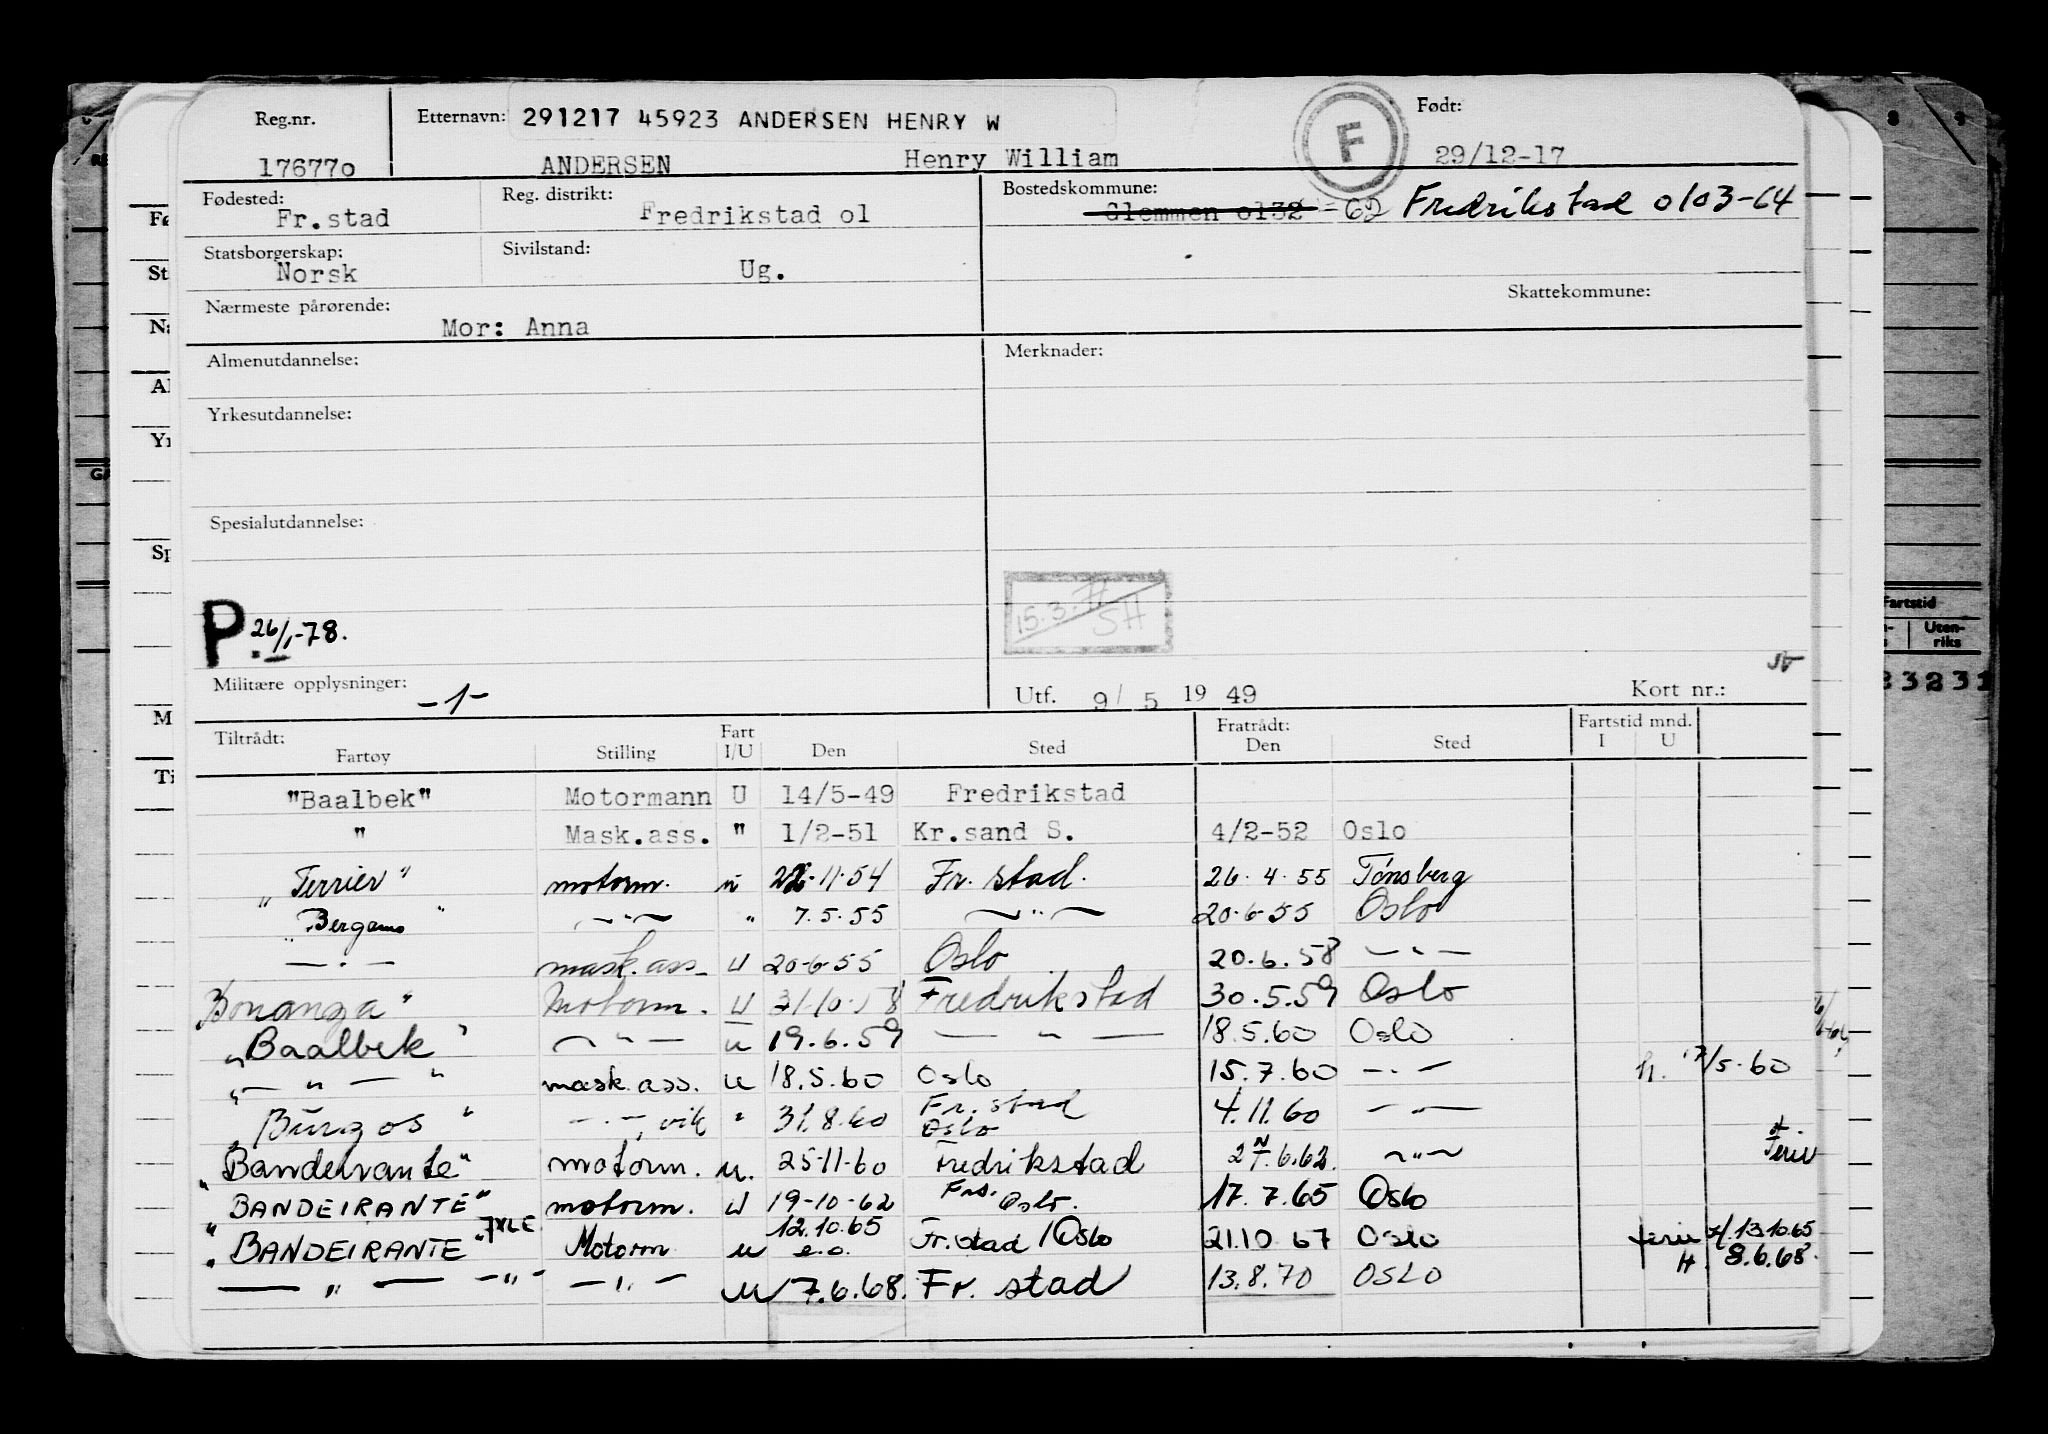 Reg.nr. Etternavn: 291217 45923 ANDERSEN HENRY W F Født:
176770 ANDERSEN Henry William 29/12-17
Fødested: Reg. distrikt: Bostedskommune:
Fr.stad Fredrikstad 01 Glemmen 0132 -62 Fredrikstad 0103-64
Statsborgerskap: Sivilstand:
Norsk Ug.
Skattekommune:
Nærmeste pårørende:
Mor: Anna
Almenutdannelse: Merknader:
Yrkesutdannelse:
Spesialutdannelse:
15.3. SH
P. 26/1-78.
Militære opplysninger: -1- Utf. 9/5 1949 Kort nr.:
Tiltrådt: Fart Fratrådt: Fartstid mnd.
Fartøy Stilling I/U Den Sted Den Sted I U
"Baalbek" Motormann U 14/5-49 Fredrikstad
" Mask.ass. " 1/2-51 Kr.sand S. 4/2-52 Oslo
"Terrier" motorm. u 11.54 Fr. stad. 26.4.55 Tønsberg
"Bergamo" -"- " 7.5.55 -"- 20.6.55 Oslo
- " - mask.ass. U 20.6.55 Oslo 20.6.58 - " -
Bonanza" Motorm. U 31.10.58 Fredrikstad 30.5.59 Oslo
"Baalbek" - " - u 19.6.59 - " - 18.5.60 Oslo
"- " - " mask.ass. u 18.5.60 Oslo 15.7.60 - " - h. 17/5-60
"Burgos" - " -, vik " 31.8.60 Fr. stad Oslo 4.11.60 - " -
"Bandeirante" motorm. u. 25-11-60 Fredrikstad 6.62. -"- Ferie
"BANDEIRANTE" motorm. U 19-10-62 Frd. Oslo. 17.7.65 Oslo
"BANDEIRANTE" JXLE Motorm u 12.10.65 e.o. Fr.stad/Oslo 21.10 67 Oslo ferie 13.10.65
- " - -"- -"- u 7.6.68. Fr. stad 13.8.70 OSLO H. 8.6.68.
Fartstid
Uten-
riks